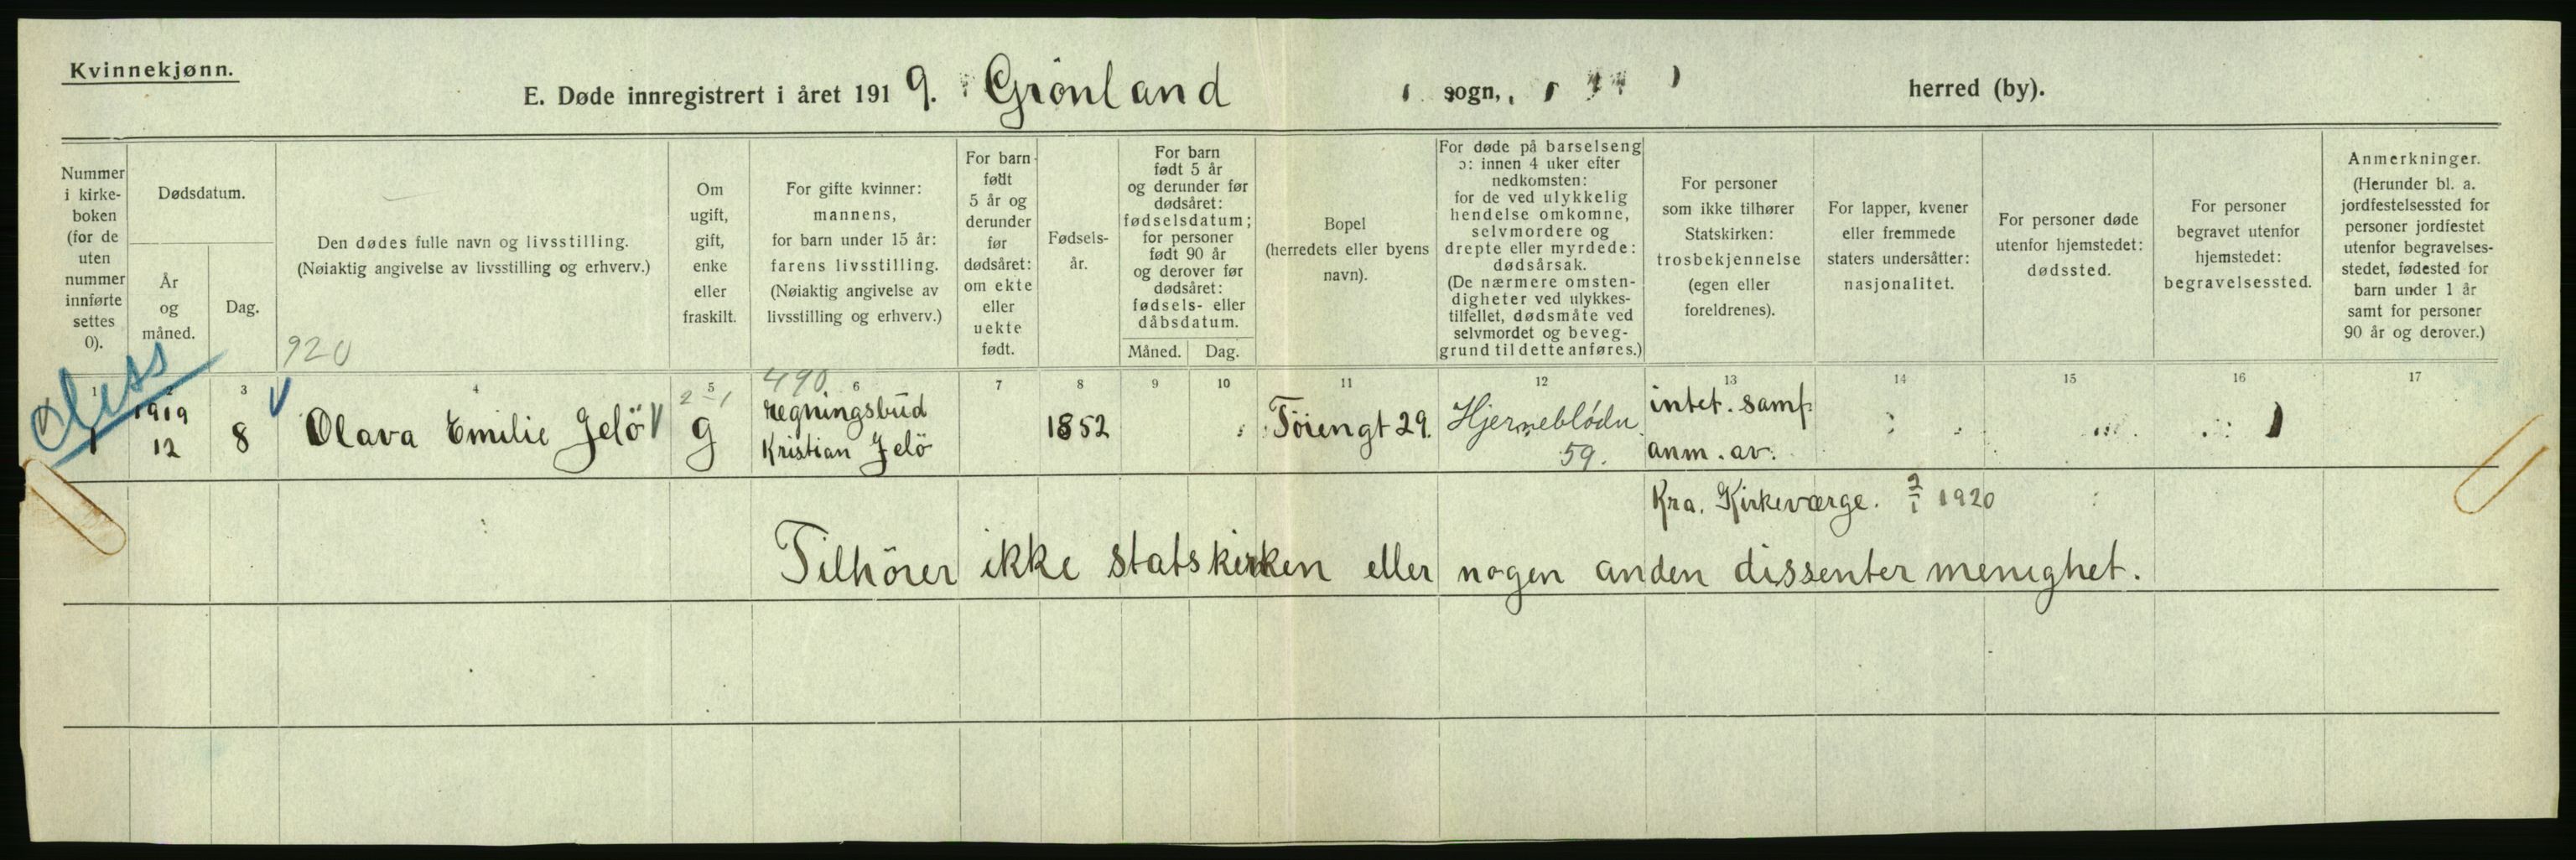 Kvinnekjønn.
E. Døde innregistrert i året 1919. Grönland sogn, herred (by).
Nummer i kirke-boken (for de uten nummer innførte settes 0).
Dødsdatum.
År og måned.
Dag.
Den dødes fulle navn og livsstilling.
(Nøiaktig angivelse av livsstilling og erhverv.)
920
Om ugift, gift, enke eller fraskilt.
For gifte kvinner: mannens, for barn under 15 år: farens livsstilling.
(Nøiaktig angivelse av livsstilling og erhverv.)
For barn født 5 år og derunder før dødsåret: om ekte eller uekte født.
Fødsels-år.
For barn født 5 år og derunder før dødsåret: fødselsdatum; for personer født 90 år og derover før dødsåret: fødsels- eller dåbsdatum.
Måned. Dag.
Bopel
(herredets eller byens navn).
For døde på barselseng ɔ: innen 4 uker efter nedkomsten: for de ved ulykkelig hendelse omkomne, selvmordere og drepte eller myrdede: dødsårsak.
(De nærmere omsten-digheter ved ulykkes-tilfellet, dødsmåte ved selvmordet og beveg-grund til dette anføres.)
For personer som ikke tilhører Statskirken: trosbekjennelse (egen eller foreldrenes).
For lapper, kvener eller fremmede staters undersåtter: nasjonalitet.
For personer døde utenfor hjemstedet: dødssted.
For personer begravet utenfor hjemstedet: begravelsessted.
Anmerkninger.
(Herunder bl. a. jordfestelsessted for personer jordfestet utenfor begravelses-stedet, fødested for barn under 1 år samt for personer 90 år og derover.)
1 2 3 4 5 6 7 8 9 10 11 12 13 14 15 16 17
Diss
2-1
490
1
1919
12
8
Olava Emilie Jelö
g
regningsbud
Kristian Jelö
1852
Töiengt 29.
Hjerneblödn.
59.
intet. samf.
anm. av.
Kra. Kirkeværge. 2/1 1920
Tilhörer ikke statskirken eller nogen anden dissenter menighet.